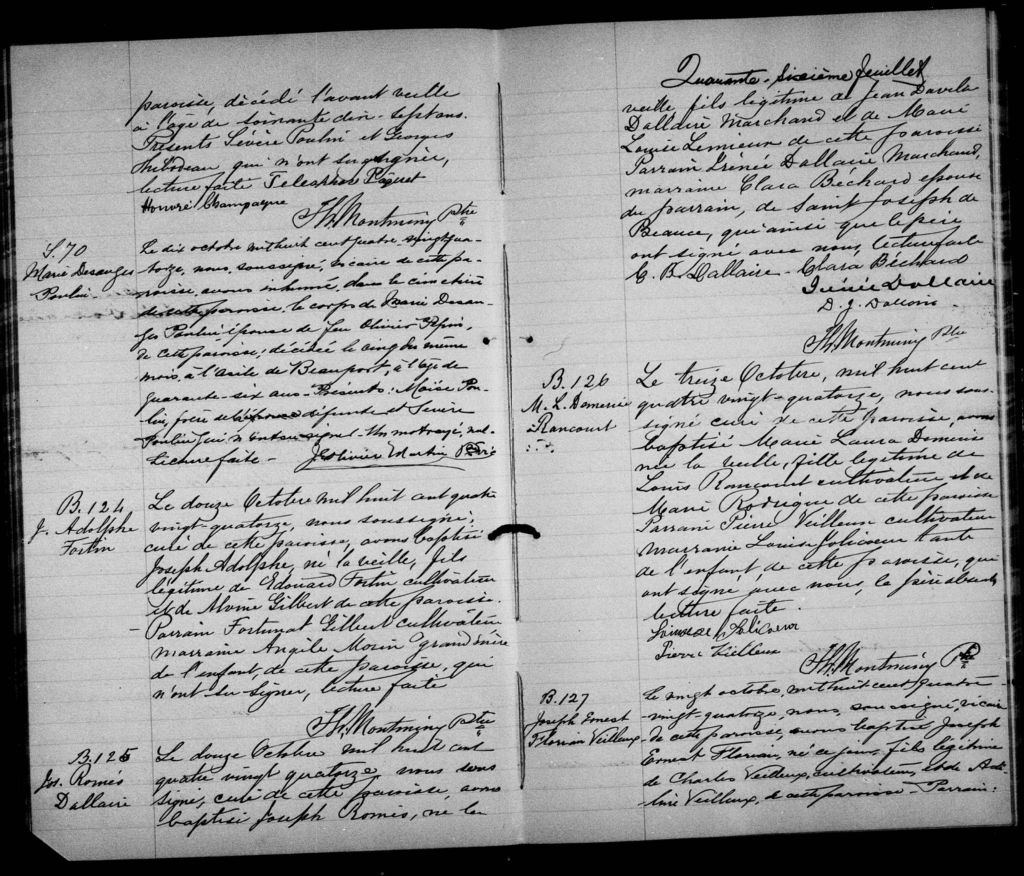 paroisse, décédé l'avant veille
à l'age de soixante dix-sept ans.
Présents Sévère Poulin et Georges
Thibodeau qui n'ont su signer,
lecture faite Telesphore Paquet
Honoré Champagne
Th. Montminy Ptre
S. 70
Marie Desanges
Poulin
Le dix octobre mil huit cent quatre vingt qua-
torze, nous, soussigné, vicaire de cette pa-
roisse, avons inhumé, dans le cimetière
de cette paroisse, le corps de Marie Desan-
ges Poulin épouse de feu Olivier Pépin,
de cette paroisse, décédée le cinq du même
mois, à l'asile de Beauport, à l'âge de
quarante-six ans - Présents: Moïse Pou-
lin, frère de la défunte et Sévère
Poulin qui n'ont su signer - Un mot rayé, nul
Lecture faite - J. Olivier Martin Ptre
B. 124
J. Adolphe
Fortin
Le douze Octobre mil huit cent quatre
vingt-quatorze, nous soussigné,
curé de cette paroisse, avons baptisé
Joseph Adolphe, né la veille, fils
légitime de Edouard Fortin cultivateur
et de Alvine Gilbert de cette paroisse.
Parrain Fortunat Gilbert cultivateur
marraine Angèle Morin grand'mère
de l'enfant, de cette paroisse, qui
n'ont su signer, lecture faite
Th. Montminy Ptre
B. 125
Jos. Roméo
Dallaire
Le douze Octobre mil huit cent
quatre vingt quatorze, nous sous
signé, curé de cette paroisse, avons
baptisé Joseph Roméo, né la
Quarante-sixième feuillet
veille fils légitime de Jean Davila
Dallaire Marchand et de Marie
Louise Lemieux de cette paroisse
Parrain Irénée Dallaire Marchand,
marraine Clara Béchard épouse
du parrain, de Saint Joseph de
Beauce, qui ainsi que le père
ont signé avec nous, lecture faite
C. B. Dallaire - Clara Béchard
Irénée Dallaire
D. J. Dallaire
Th. Montminy Ptre
B. 126
M. L. Domerise
Rancourt
Le treize Octobre, mil huit cent
quatre vingt-quatorze, nous sous-
signé curé de cette paroisse, avons
baptisé Marie Laura Domerise
née la veille, fille légitime de
Louis Rancourt cultivateur et de
Marie Rodrigue de cette paroisse
Parrain Pierre Veilleux cultivateur
marraine Louise Jolicoeur tante
de l'enfant, de cette paroisse, qui
ont signé avec nous, le père absent
lecture faite.
Louise Jolicoeur
Pierre Vielleux
Th. Montminy Ptre
B. 127
Joseph Ernest
Florian Veilleux
Le vingt octobre, mil huit cent quatre-
vingt-quatorze, nous, soussigné, vicaire
de cette paroisse, avons baptisé Joseph
Ernest Florian, né ce jour, fils légitime
de Charles Veilleux, cultivateur, et de Ade-
line Veilleux, de cette paroisse - Parrain: